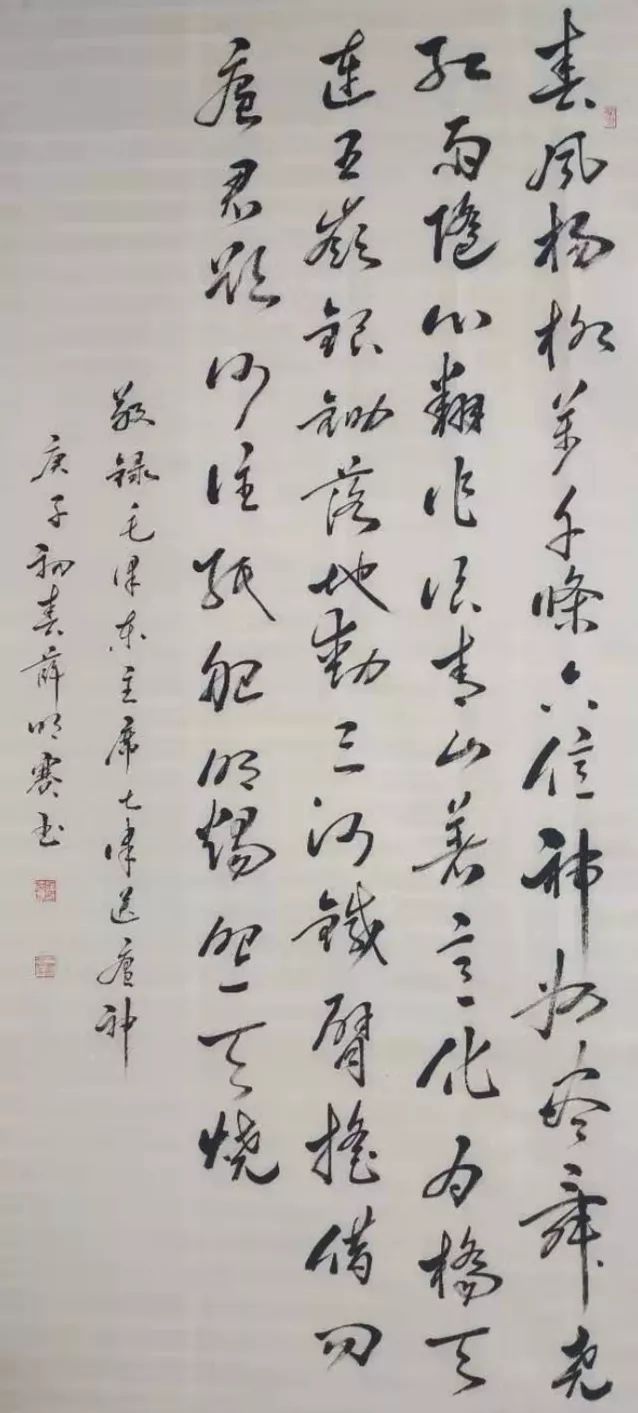 春风杨柳万千條六億神州尽舜尧
红雨随心翻作浪青山着意化为橋天
连五嶺銀锄落地動三河鐵臂摇借问
瘟君欲何往纸船明燭照天烧
敬録毛泽东主席七律送瘟神
庚子初春薛明赛书